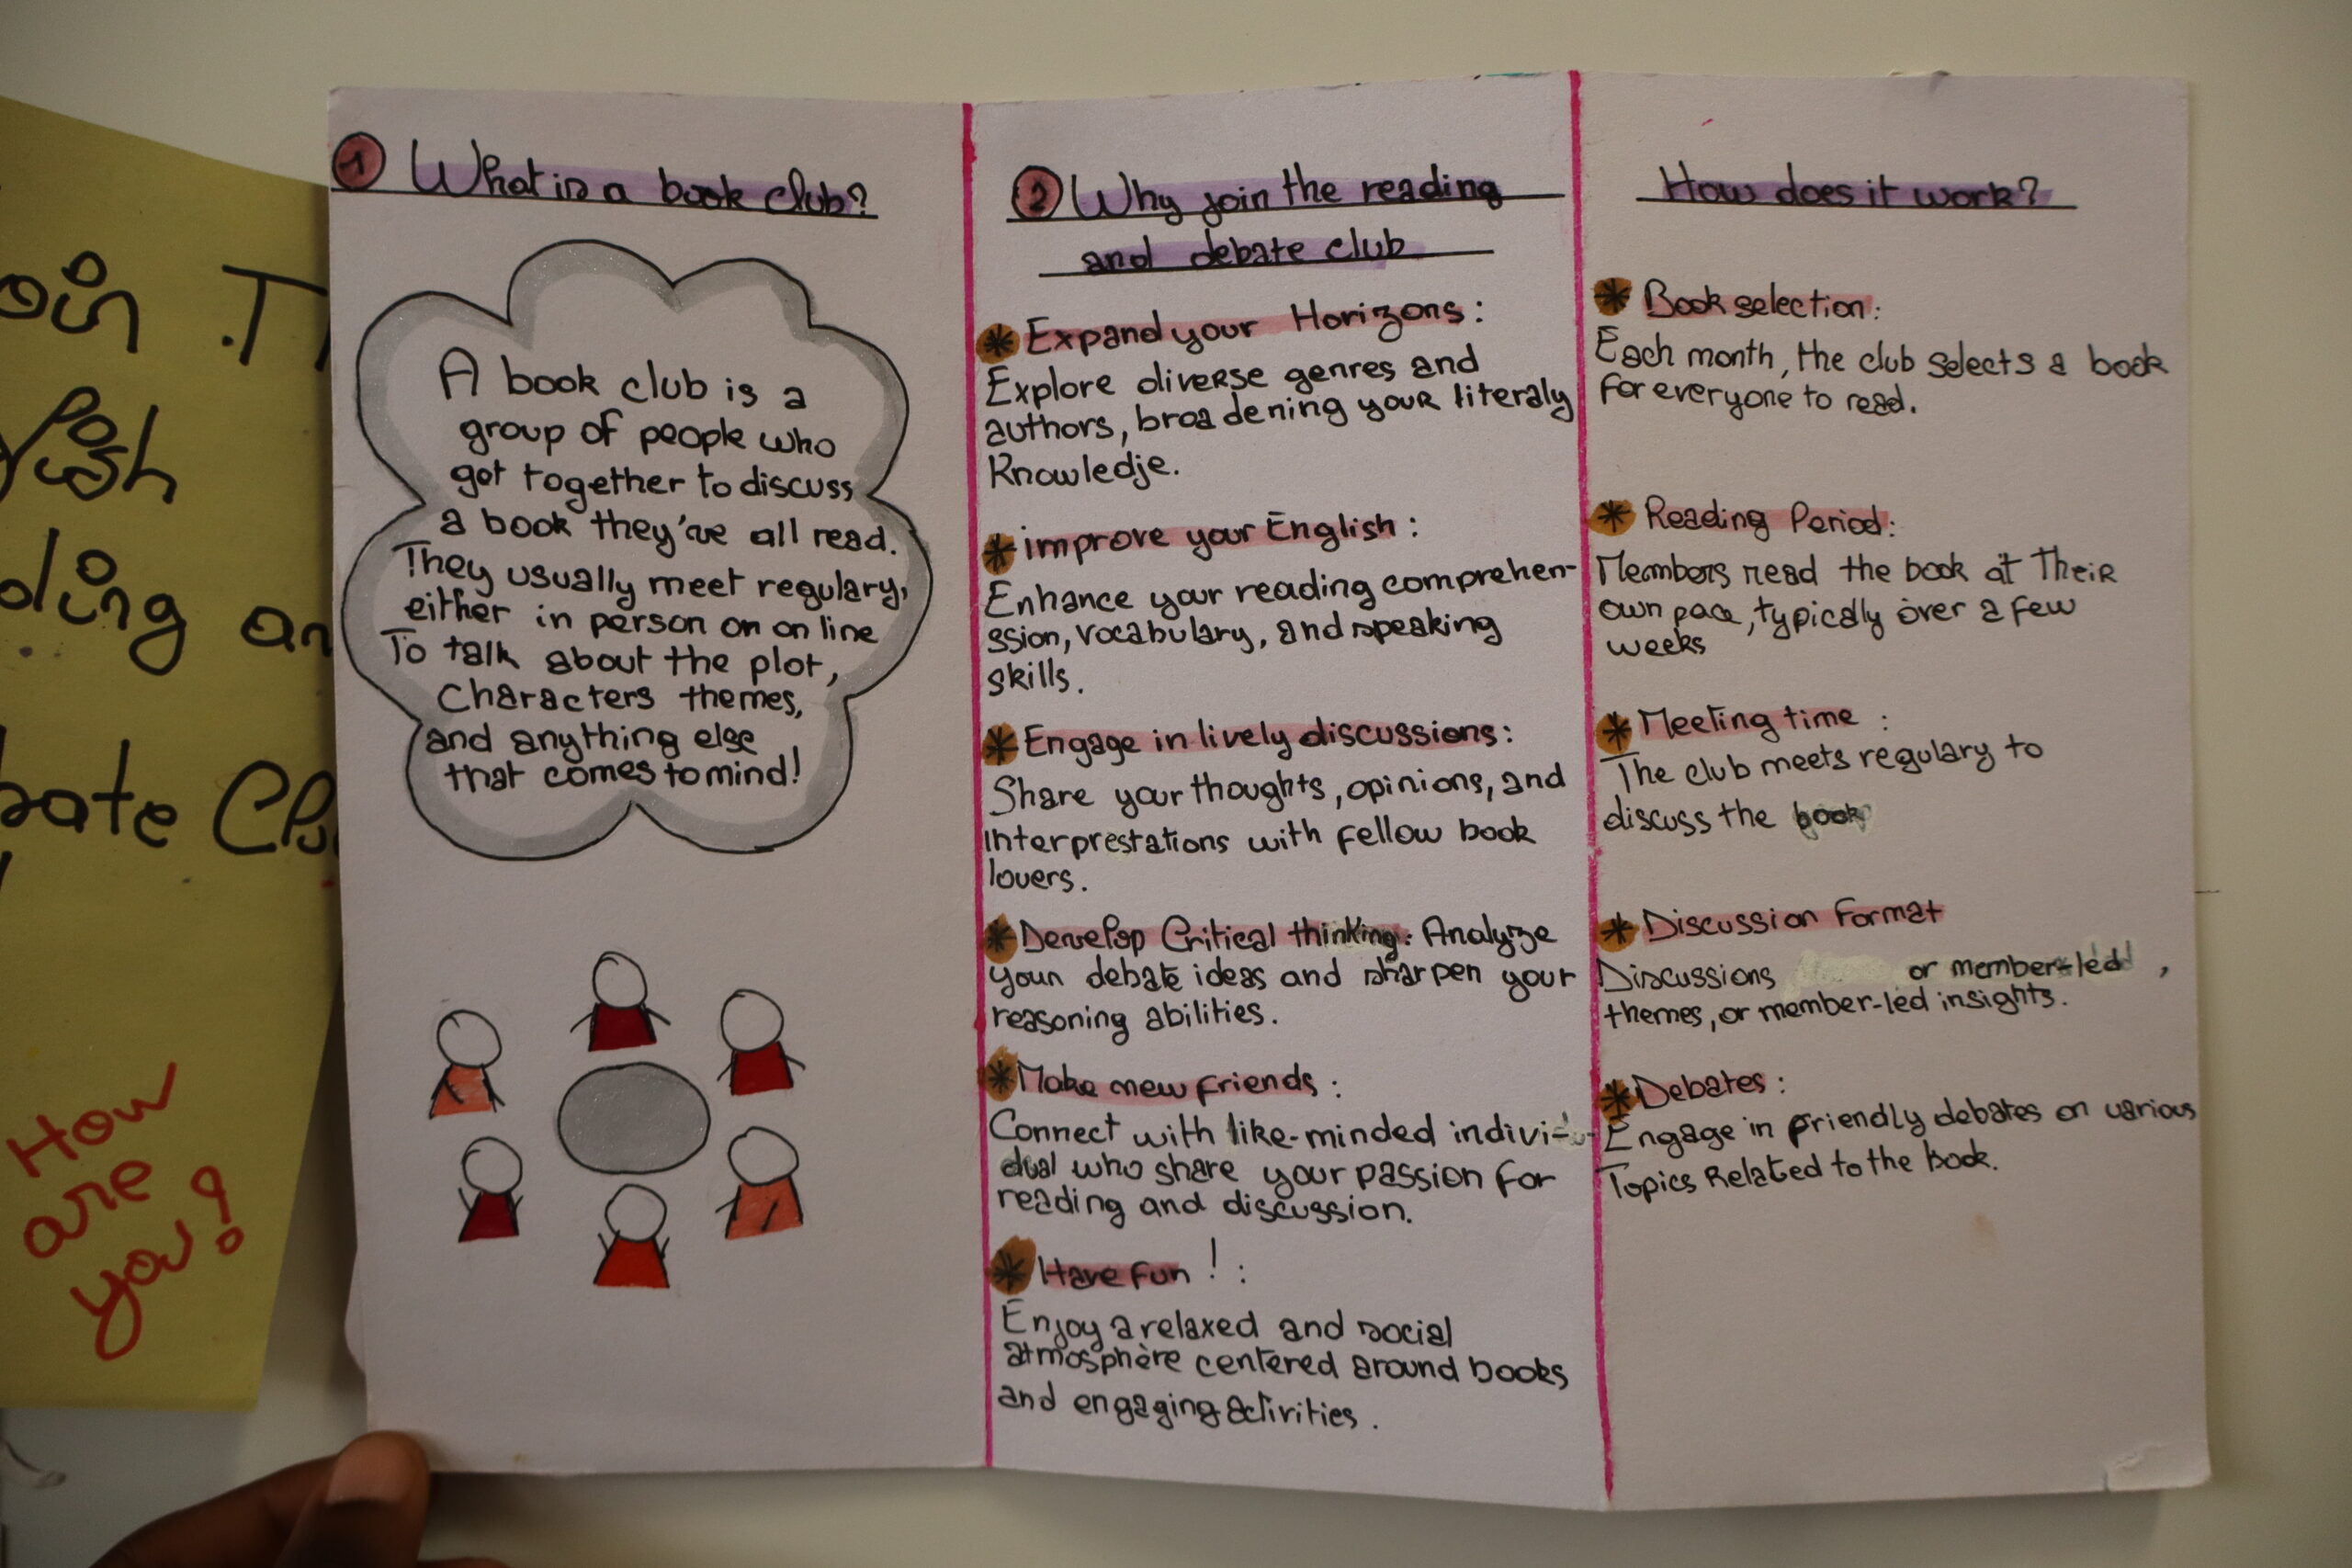 oin Th
lish
ding an
bate Clu
How
are
you?
1 What is a book club?
A book club is a
group of people who
get together to discuss
a book they've all read.
They usually meet regulary,
either in person on on line
To talk about the plot,
characters themes,
and anything else
that comes to mind!
2 Why join the reading
and debate club
* Expand your Horizons :
Explore diverse genres and
authors, broadening your literaly
Knowledje.
* improve your English :
Enhance your reading comprehen-
ssion, vocabulary, and speaking
skills.
* Engage in lively discussions :
Share your thoughts, opinions, and
Interprestations with fellow book
lovers.
* Develop Critical thinking : Analyze
your debate ideas and sharpen your
reasoning abilities.
* Make new friends :
Connect with like-minded indivi-
dual who share your passion for
reading and discussion.
* Have fun ! :
Enjoy a relaxed and social
atmosphère centered around books
and engaging activities.
How does it work?
* Book selection :
Each month, the club selects a book
for everyone to read.
* Reading Period :
Members read the book at Their
own pace, typically over a few
weeks
* Meeting time :
The club meets regulary to
discuss the book
* Discussion Format
Discussions or member-led ,
themes, or member-led insights.
* Debates :
Engage in friendly debates on various
Topics Related to the book.